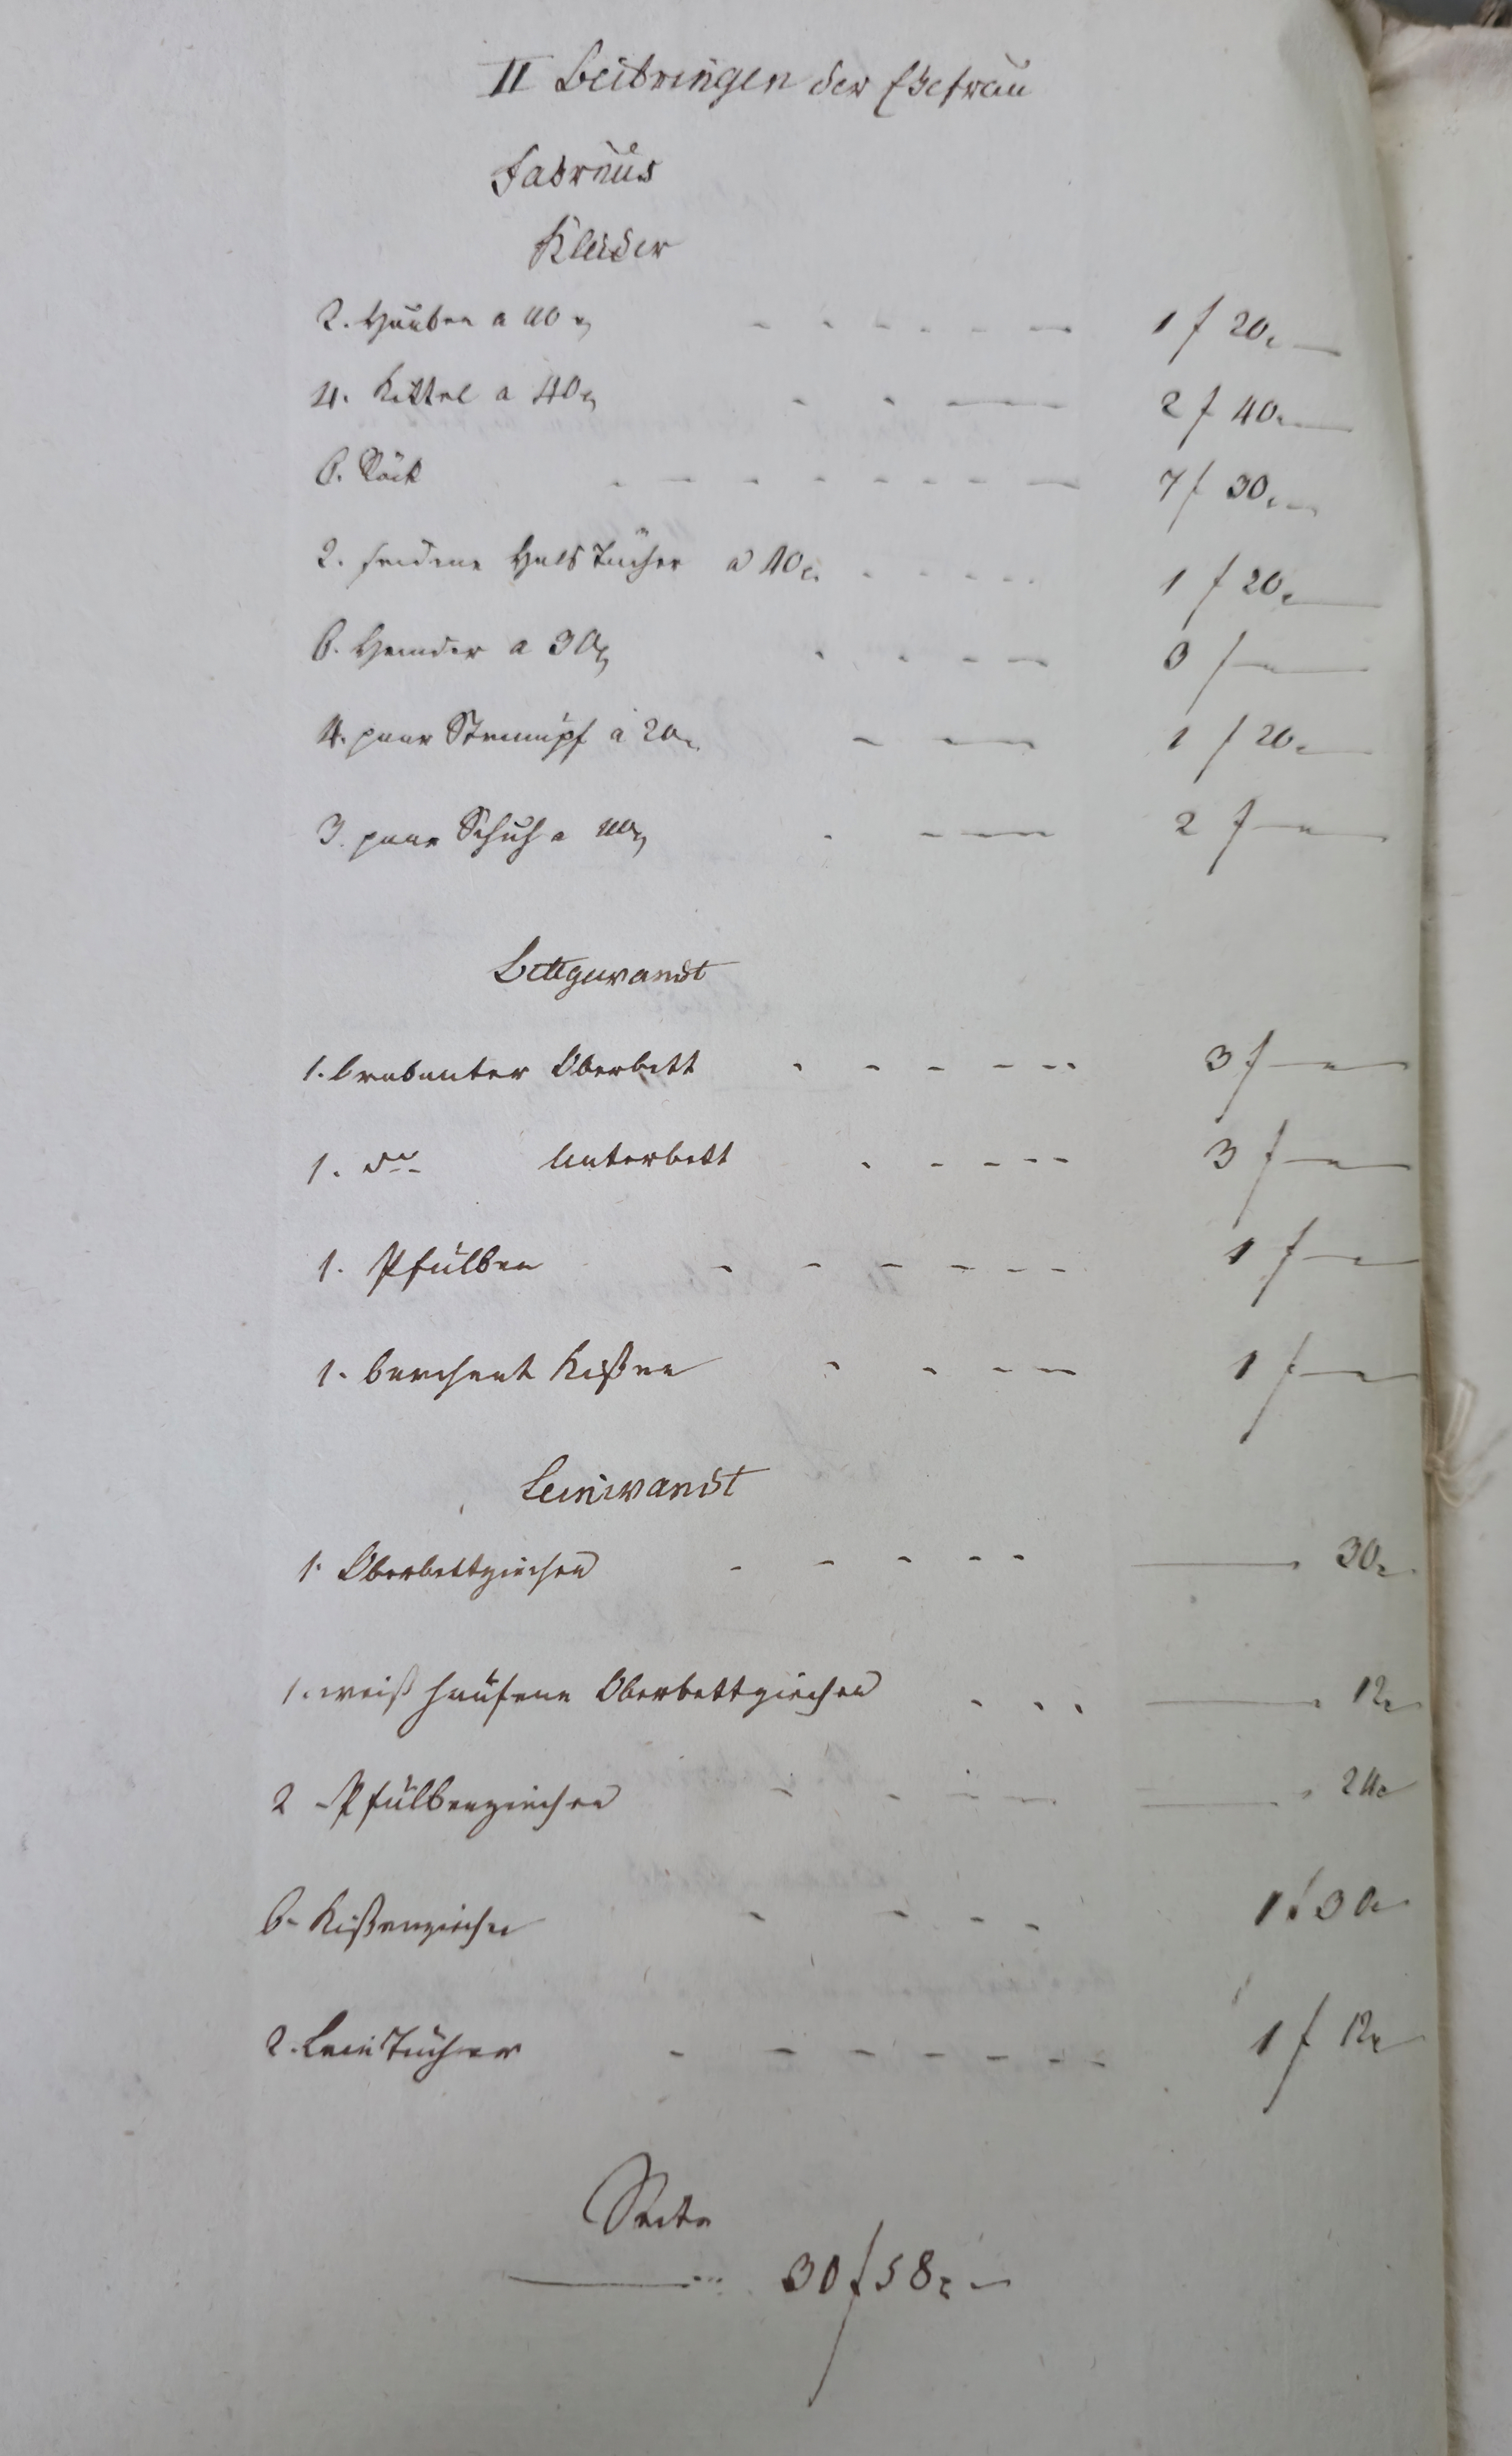 II Beibringen der Ehefrau
Fahrnus
Kleider
2. Hauben a 40 x 1 f 20x
4. Kittel a 40x 2 f 40x
6. Röck 7 f 30x
2. seidene HalsTücher a 40x 1 f 20x
6. Hemder a 30x 3 f
4. paar Strumpf a 20x 1 f 20x
3. paar Schuh a 40x 2 f
Bettgewandt
1. brabanter Oberbett 3 f
1. do Unterbett 3 f
1. Pfülben 1 f
1. barchent Kißen 1 f
Leinwandt
1. Oberbettziechen 30x
1. weiß häufene Oberbettziechen 12x
2 Pfülbenziechen 24x
6 Kißenziechen 1 f 30x
2. LeinTücher 1 f 12x
Seite
30 f 58x